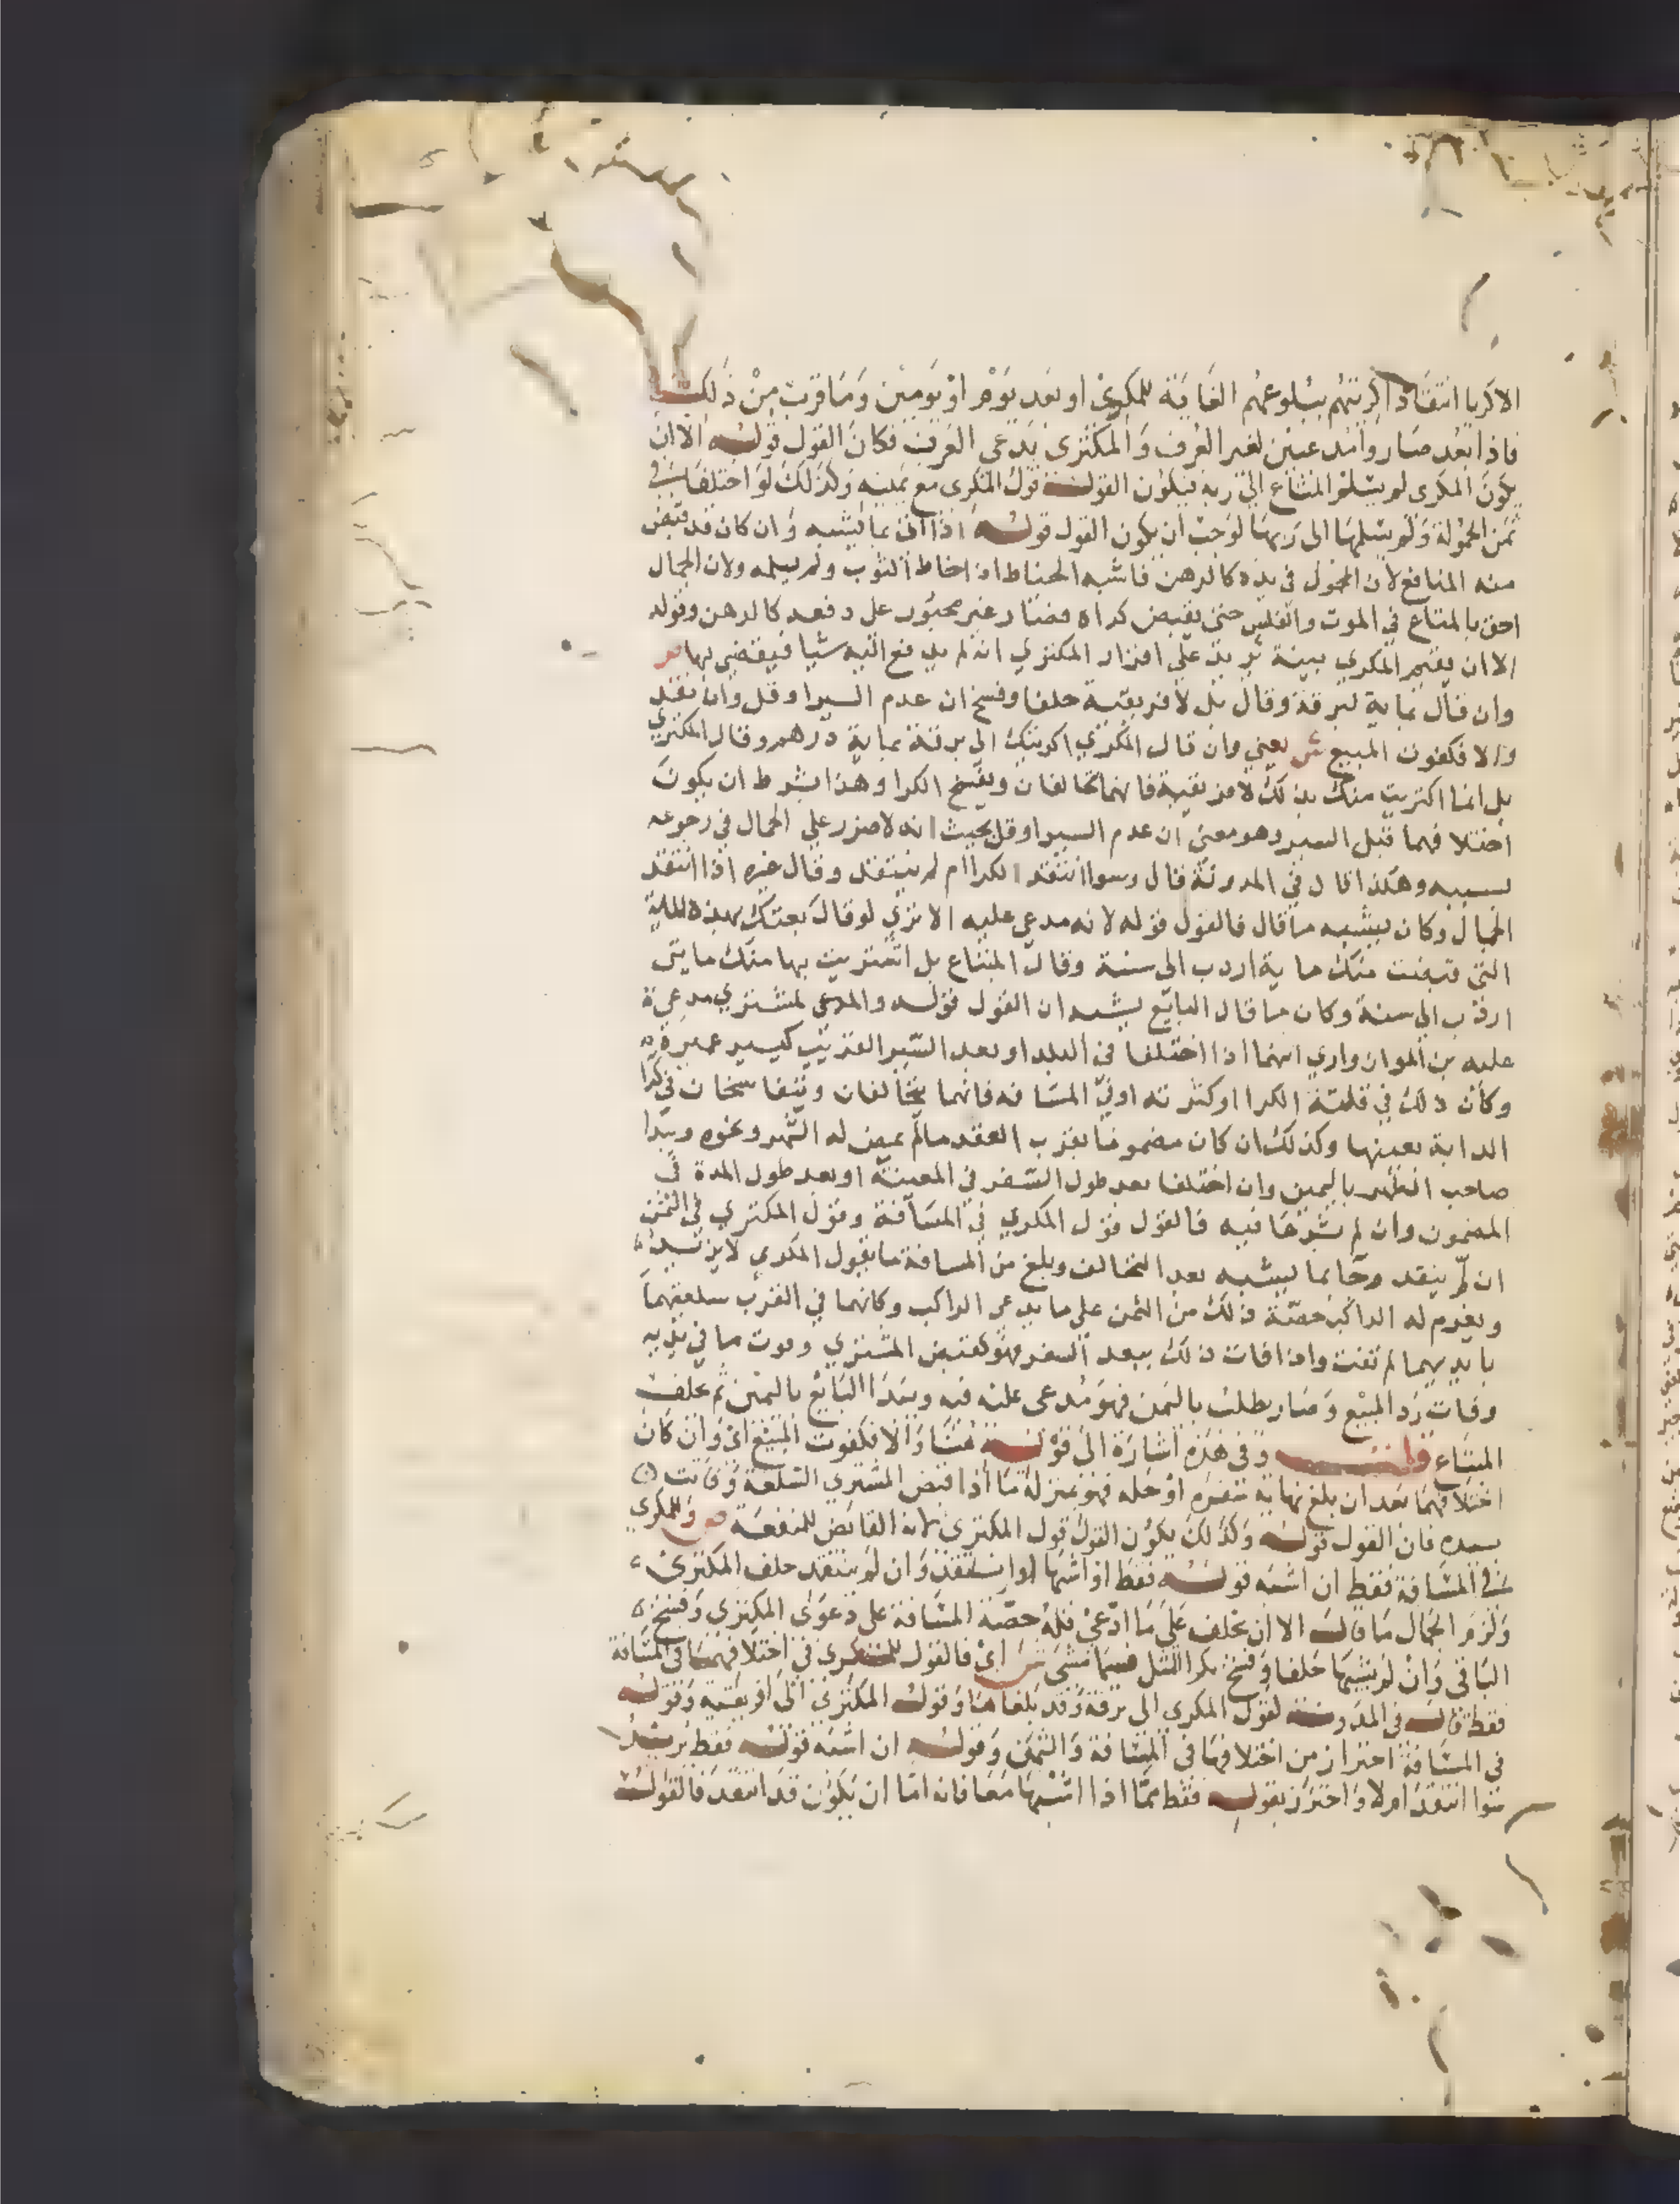 الاكريا انتقاد اكريتهم ببلوعهم الغاية للمكرى او بعد يوم او يومين وما قرب من ذلك
فاذا بعد صار وامد عيين لغير العرف والمكترى يدعى العرف فكان القول قوله الا ان
يكون المكرى لم يسلم المتاع الى ربه فيكون القول قول المكرى مع يمينه وكذلك لو اختلفا في
ثمن الحمولة ولم يسلمها الى ربها لوجب ان يكون القول قوله اذا اتى بما يشبه وان كان قد قبض
منه المنافع لان المحول في يده كالرهن فاشبه الحناط اذا خاط الثوب ولم يسلمه ولان الجمال
احق بالمتاع في الموت والفلس حتى يقبض كراه فصار غير مجبور على دفعه كالرهن وقوله
الا ان يقيم المكري بينة يريد على اقرار المكتري انه لم يدفع اليه شيا فيقضى بها ص
وان قال بماية لبرقة وقال بل لافريقية حلفا وفسخ ان عدم السير او قل وان نقد
والا فكفوت المبيع ش يعني وان قال المكري اكريتك الى برقة بماية درهم وقال المكتري
بل انما اكتريت منك بذلك لافريقية فانهما يتحالفان ويفسخ الكرا وهذا بشرط ان يكون
اختلافهما قبل السير وهو معنى ان عدم السير او قل بحيث انه لا ضرر على الجمال في رجوعه
بسببه وهكذا قال في المدونة قال وسوا انتقد الكرا ام لم ينتقد وقال غيره اذا انتقد
الجمال وكان يشبه ما قال فالقول قوله لانه مدعى عليه الا ترى لو قال بعتك بهذه الماية
التى قبضت منك ماية اردب الى سنة وقال المبتاع بل اشتريت بها منك مايتى
اردب الى سنة وكان ما قال البايع يشبه ان القول قوله والمدعى المشتري مدعى
عليه بن المواز وارى انهما اذا اختلفا في البلد او بعد السير القريب كيسير
وكان ذلك في قلة الكرا او كثرته او في المسافة فانهما يتحالفان ويتفاسخان في كرا
الدابة بعينها وكذلك ان كان مضمونا بقرب العقد مالم يمض له الشهر ونحوه ويبدا
صاحب الظهر باليمين وان اختلفا بعد طول السفر في المعينة او بعد طول المدة في
المضمون وان لم يبرحا فيه فالقول قول المكري في المسافة وقول المكتري في الثمن
ان لم ينقد وجا بما يشبه بعد التحالف وبلغ من المسافة ما يقول المكري لا يزيد
ويغرم له الراكب حصة ذلك من الثمن على ما يدعى الراكب وكانهما في القرب سلعتهما
بايديهما لم تفت واذا فات ذلك ببعد السفر فهو كقبض المشتري وفوت ما في يديه
وفات رد المبيع وصار يطلب بالثمن فهو مدعى عليه فيه ويبدا البايع باليمين ثم يحلف
المبتاع قلت وفي هذه اشارة الى قوله هنا والا فكفوت المبيع اى وان كان
اختلافهما بعد ان بلغ نهاية سفره او جله فهو بمنزلة ما اذا قبض المشتري السلعة وفاتت
بيده فان القول قوله وكذلك يكون القول قول المكترى لانه القابض للمنفعة ص وللمكرى
في المسافة فقط ان اشبه قوله فقط او اشبها وانتقد وان لم ينتقد حلف المكترى
ولزم الجمال ما قال الا ان يحلف على ما ادعى فله حصة المسافة على دعوى المكترى وفسخ
الباقى وان لم يشبها حلفا وفسخ بكرا المثل فيما مشى ش اى فالقول للمكرى في اختلافهما في المسافة
فقط قال في المدونة لقول المكرى الى برقة وقد بلغاها وقول المكترى الى افريقية وقوله
في المسافة احترازا من اختلافهما في المسافة والثمن وقوله ان اشبه قوله فقط يريد
سوا انتقد ام لا واحترز بقوله فقط مما اذا اشبها معا فانه اما ان يكون قد انتقد فالقول